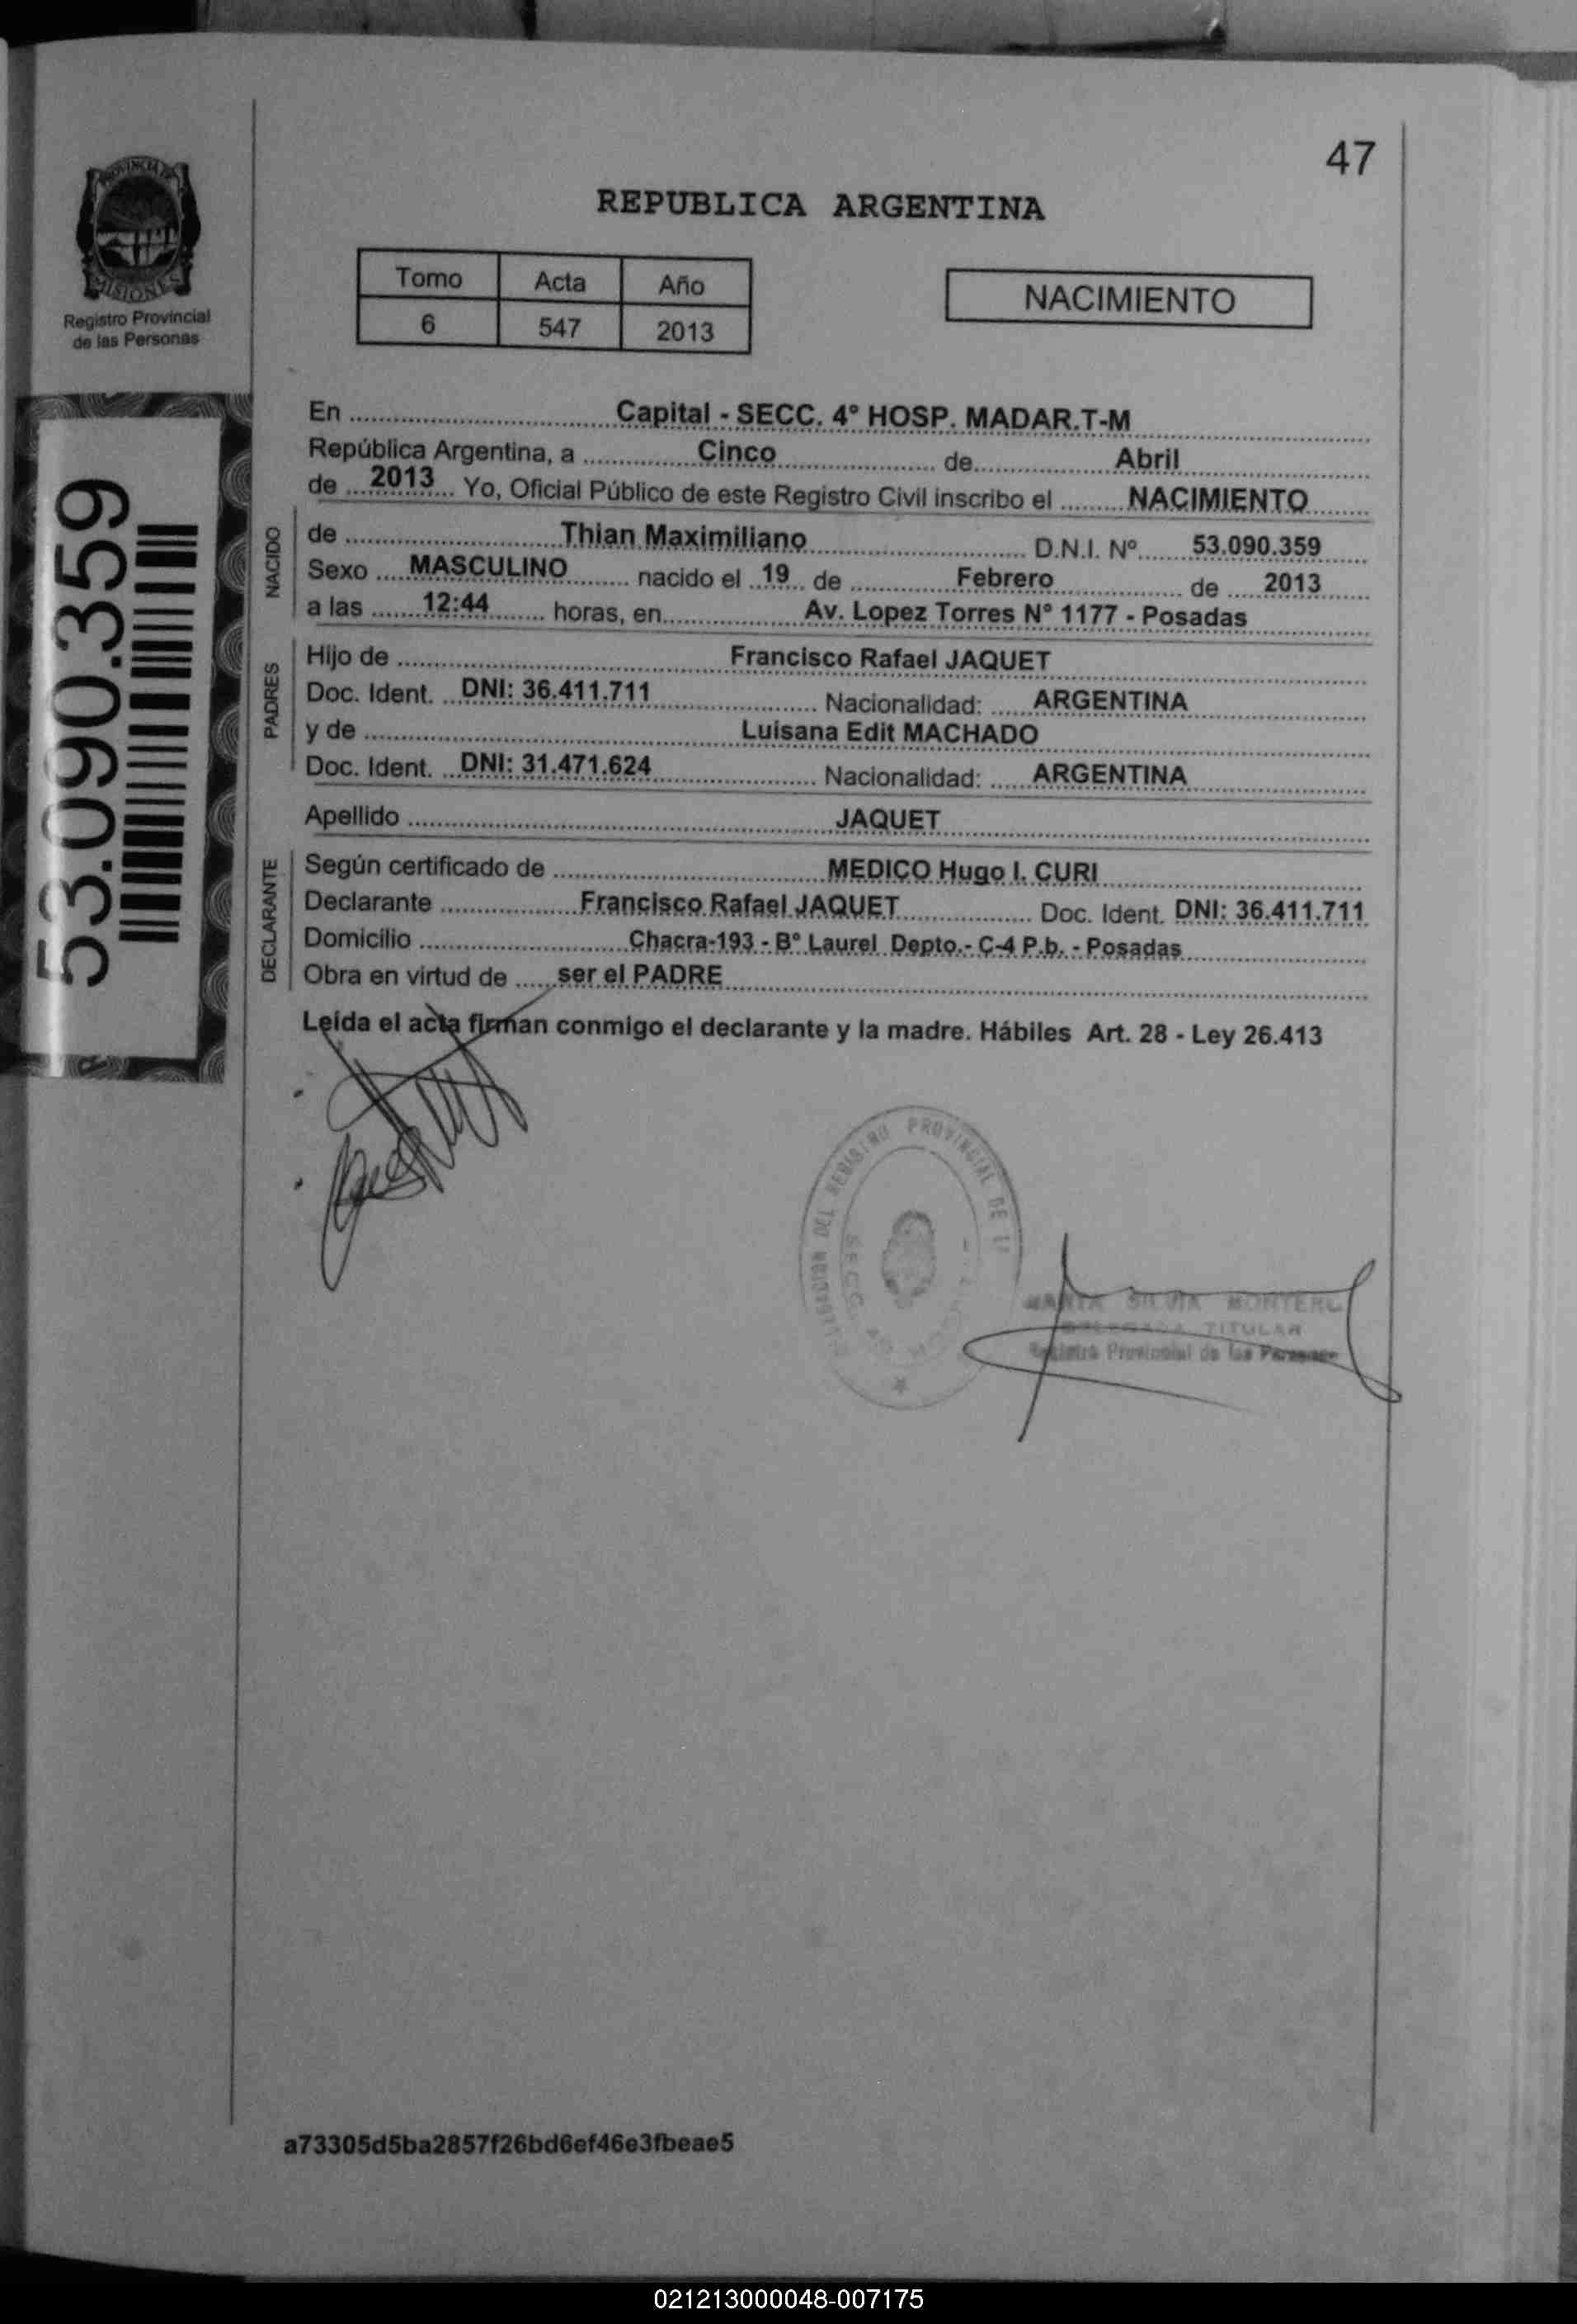 47
PROVINCIA DE
MISIONES
Registro Provincial
de las Personas
REPUBLICA ARGENTINA
Tomo Acta Año
6 547 2013
NACIMIENTO
53.090.359
En Capital - SECC. 4° HOSP. MADAR.T-M
República Argentina, a Cinco de Abril
de 2013 Yo, Oficial Público de este Registro Civil inscribo el NACIMIENTO
NACIDO
de Thian Maximiliano D.N.I. Nº 53.090.359
Sexo MASCULINO nacido el 19 de Febrero de 2013
a las 12:44 horas, en Av. Lopez Torres Nº 1177 - Posadas
PADRES
Hijo de Francisco Rafael JAQUET
Doc. Ident. DNI: 36.411.711 Nacionalidad: ARGENTINA
y de Luisana Edit MACHADO
Doc. Ident. DNI: 31.471.624 Nacionalidad: ARGENTINA
Apellido JAQUET
DECLARANTE
Según certificado de MEDICO Hugo I. CURI
Declarante Francisco Rafael JAQUET Doc. Ident. DNI: 36.411.711
Domicilio Chacra-193 - Bº Laurel Depto.- C-4 P.b. - Posadas
Obra en virtud de ser el PADRE
Leída el acta firman conmigo el declarante y la madre. Hábiles Art. 28 - Ley 26.413
DEL REGISTRO PROVINCIAL DE
SECC
SILVIA
TITULAR
Provincial de las
a73305d5ba2857f26bd6ef46e3fbeae5
021213000048-007175